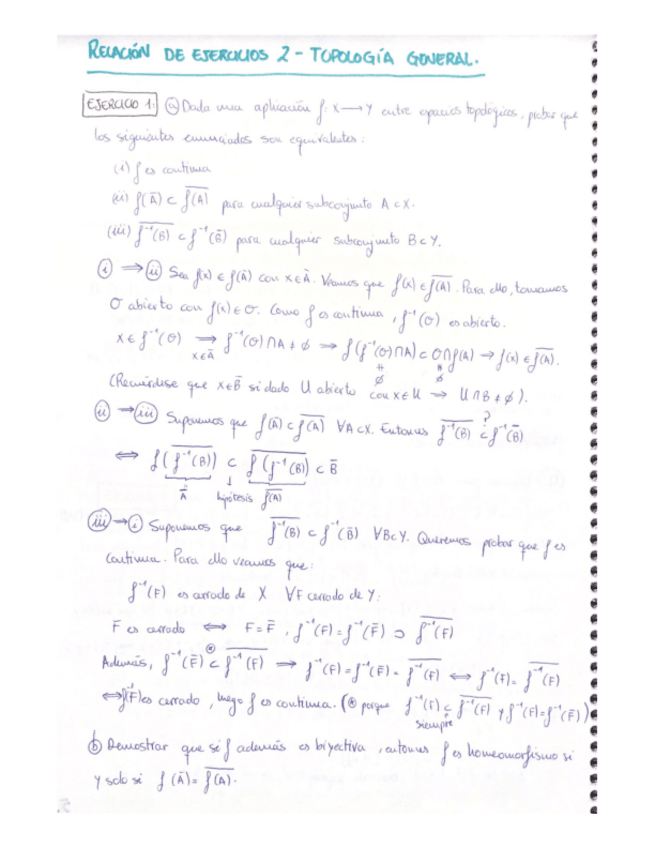 RELACIÓN DE EJERCICIOS 2 - TOPOLOGÍA GENERAL.
EJERCICIO 1: ⓐ Dada una aplicación f: X → Y entre espacios topológicos, probar que
los siguientes enunciados son equivalentes:
(i) f es continua
(ii) f(Ā) ⊂ \overline{f(A)} para cualquier subconjunto A ⊂ X.
(iii) \overline{f⁻¹(B)} ⊂ f⁻¹(B̄) para cualquier subconjunto B ⊂ Y.
ⓘ ⟹ ⓘⓘ Sea f(x) ∈ f(Ā) con x ∈ Ā. Veamos que f(x) ∈ \overline{f(A)}. Para ello, tomamos
O abierto con f(x) ∈ O. Como f es continua, f⁻¹(O) es abierto.
x ∈ f⁻¹(O) ⟹ f⁻¹(O) ∩ A ≠ ∅ ⟹ f(f⁻¹(O) ∩ A) ⊂ O ∩ f(A) → f(x) ∈ \overline{f(A)}.
x ∈ Ā ≠ ∅ ≠ ∅
(Recuérdese que x ∈ B̄ si dado U abierto con x ∈ U ⟹ U ∩ B ≠ ∅).
ⓘⓘ → ⓘⓘⓘ Suponemos que f(Ā) ⊂ \overline{f(A)} ∀A ⊂ X. Entonces \overline{f⁻¹(B)} ⊂? f⁻¹(B̄)
⟺ f(\overline{f⁻¹(B)}) ⊂ \overline{f(f⁻¹(B))} ⊂ B̄
Ā hipótesis \overline{f(A)}
ⓘⓘⓘ → ⓘ Suponemos que \overline{f⁻¹(B)} ⊂ f⁻¹(B̄) ∀B ⊂ Y. Queremos probar que f es
continua. Para ello veamos que:
f⁻¹(F) es cerrado de X ∀F cerrado de Y:
F es cerrado ⟺ F = F̄, f⁻¹(F) = f⁻¹(F̄) ⊃ \overline{f⁻¹(F)}
Además, f⁻¹(F̄) ⊂^⊛ \overline{f⁻¹(F)} ⟹ f⁻¹(F) = f⁻¹(F̄) = \overline{f⁻¹(F)} ⟺ f⁻¹(F) = \overline{f⁻¹(F)}
⟺ f⁻¹(F) es cerrado, luego f es continua. (⊛ porque f⁻¹(F) ⊂ \overline{f⁻¹(F)} y f⁻¹(F) = f⁻¹(F̄))
siempre
ⓑ Demostrar que si f además es biyectiva, entonces f es homeomorfismo si
y solo si f(Ā) = \overline{f(A)}.